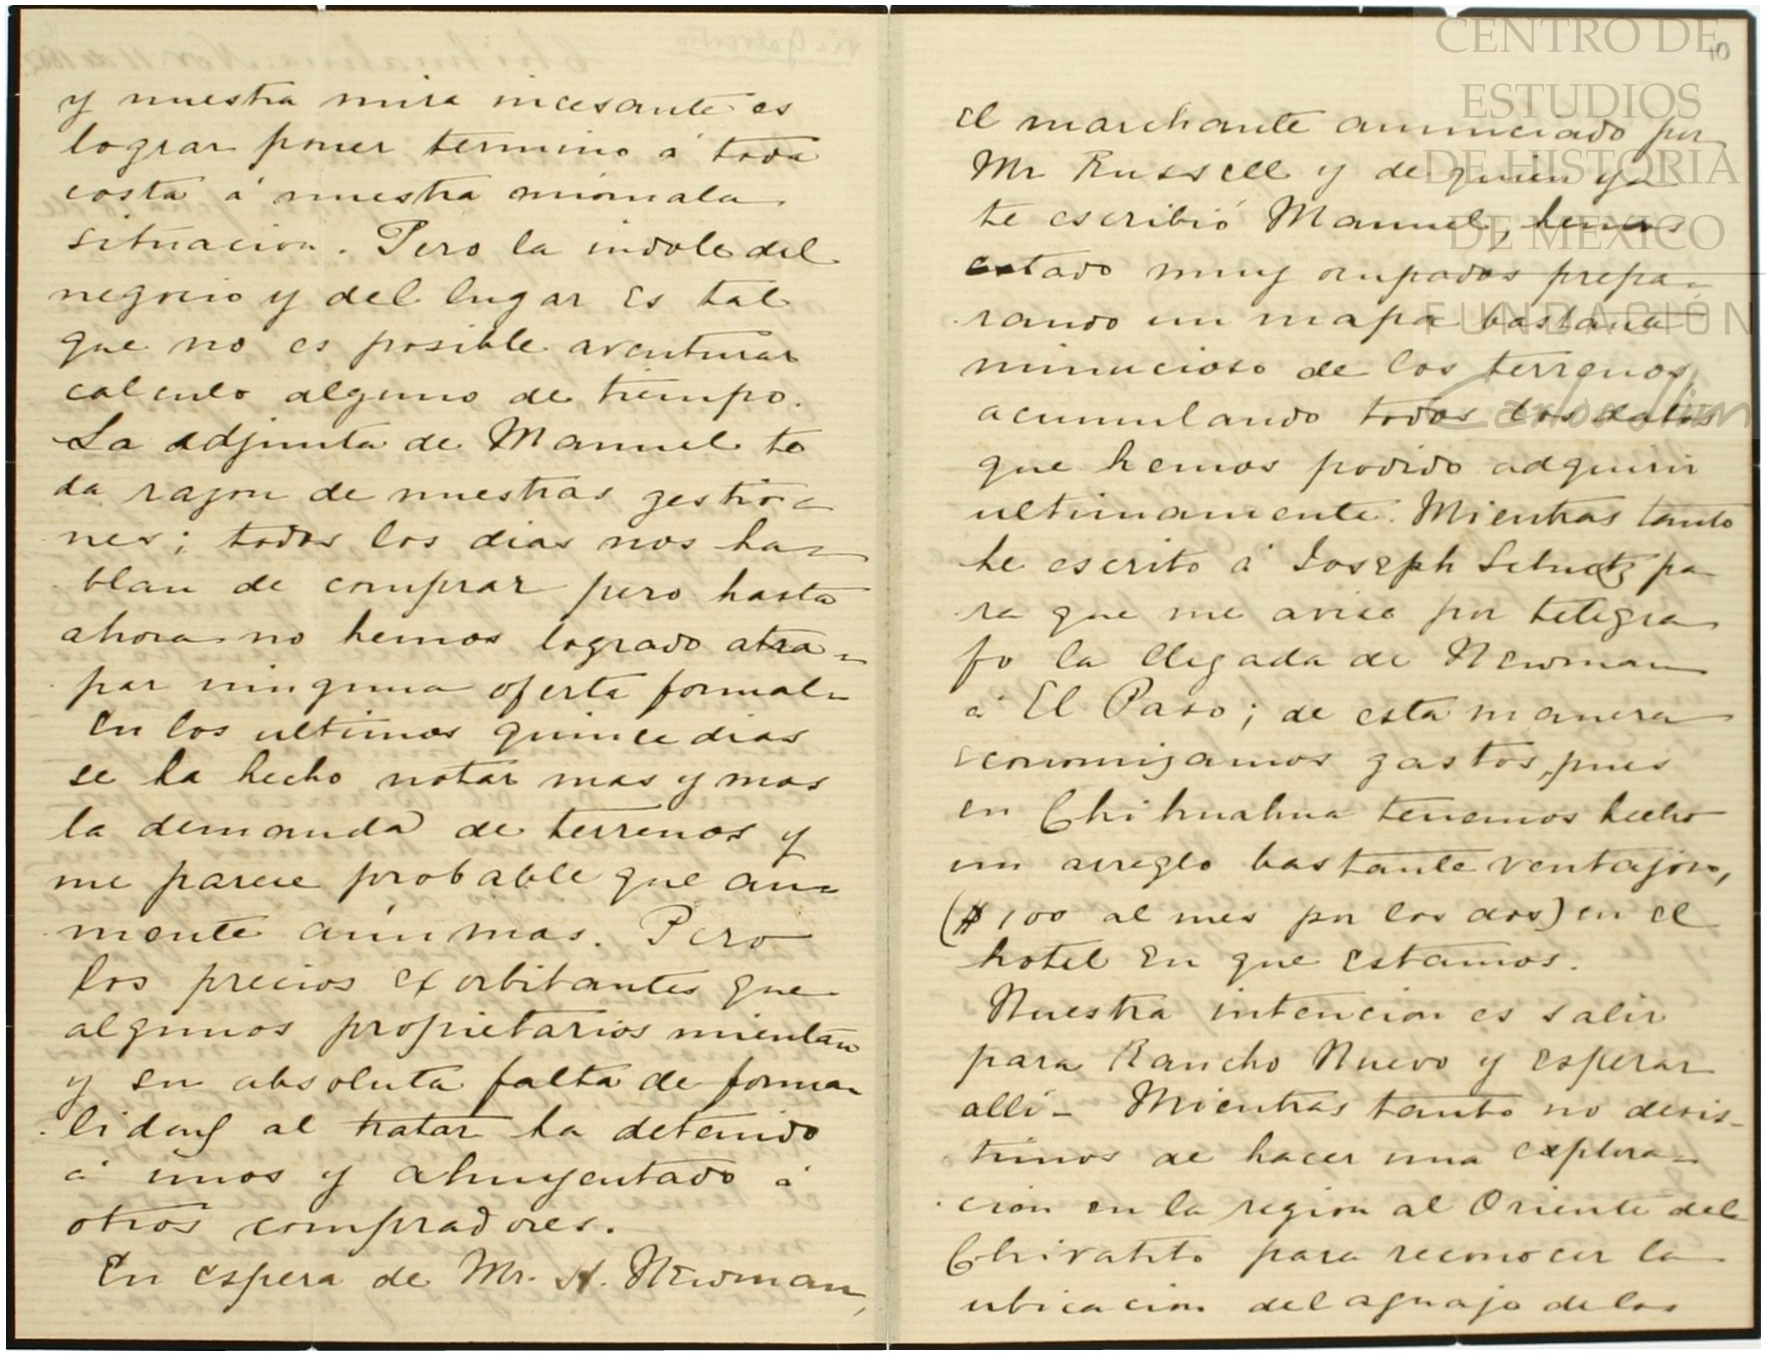 y nuestra mira incesante es
lograr poner termino á toda
costa á nuestra anomala
situacion. Pero la indole del
negocio y del lugar es tal
que no es posible aventurar
calculo alguno de tiempo.
La adjunta de Manuel te
da razon de nuestras gestio=
nes; todos los dias nos ha=
blan de comprar pero hasta
ahora no hemos logrado atra=
par ninguna oferta formal.
En los ultimos quince dias
se ha hecho notar mas y mas
la demanda de terrenos y
me parece probable que au=
mente aún mas. Pero
los precios exorbitantes que
algunos propietarios mientan
y su absoluta falta de forma=
lidad al tratar ha detenido
á unos y ahuyentado á
otros compradores.
En espera de Mr. A. Newman,
10
el marchante anunciado por
Mr Russell y de quien ya
te escribió Manuel, hemos
estado muy ocupados prepa=
rando un mapa bastante
minucioso de los terrenos,
acumulando todos los datos
que hemos podido adquirir
ultimamente. Mientras tanto
he escrito á Joseph Schutz pa
ra que me avise por telegra
fo la llegada de Newman
á El Paso; de esta manera
economizamos gastos, pues
en Chihuahua tenemos hecho
un arreglo bastante ventajoso,
($100 al mes por los dos) en el
hotel en que estamos.
Nuestra intencion es salir
para Rancho Nuevo y esperar
alli- Mientras tanto no desis-
timos de hacer una explora=
cion en la region al Oriente del
Chivatito para reconocer la
ubicacion del aguaje de los
CENTRO DE
ESTUDIOS
DE HISTORIA
DE MEXICO
FUNDACIÓN
Carlos Slim